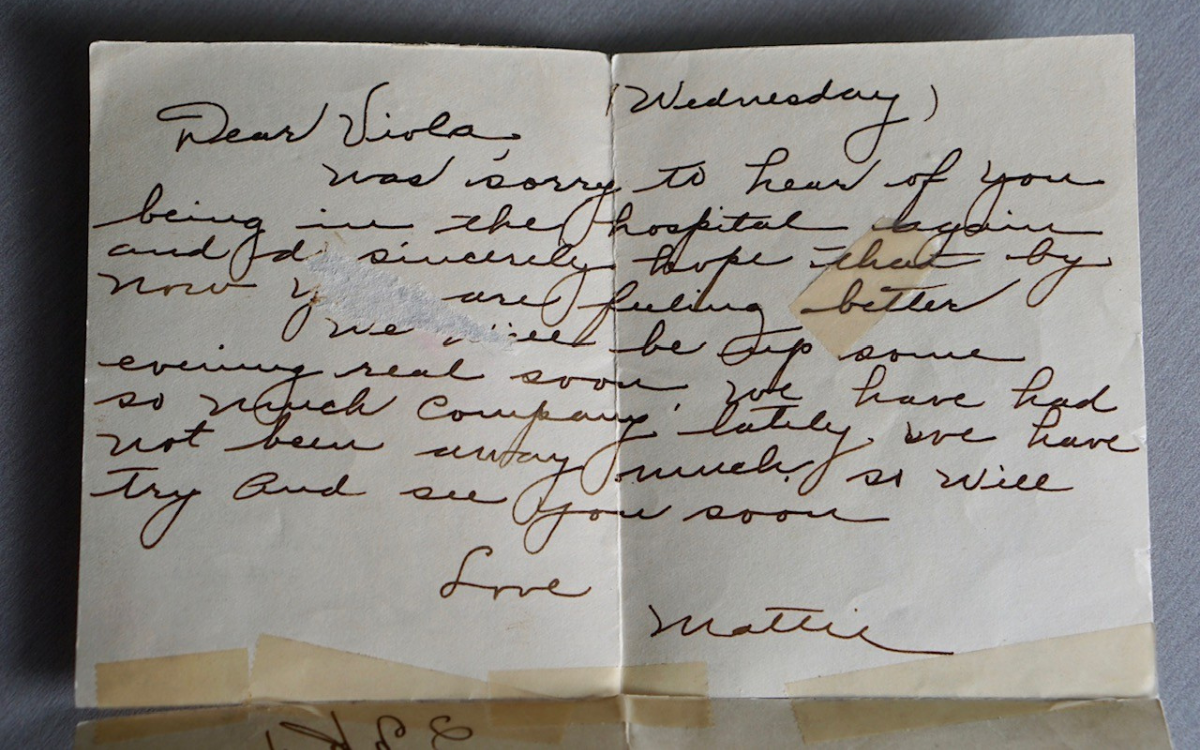 (Wednesday)
Dear Viola,
was sorry to hear of you
being in the hospital again
and d sincerely hope that by
now y are feeling better
we be up some
evening real soon. we have had
so much company, lately. we have
not been away much. so will
try and see you soon
Love
Mattie